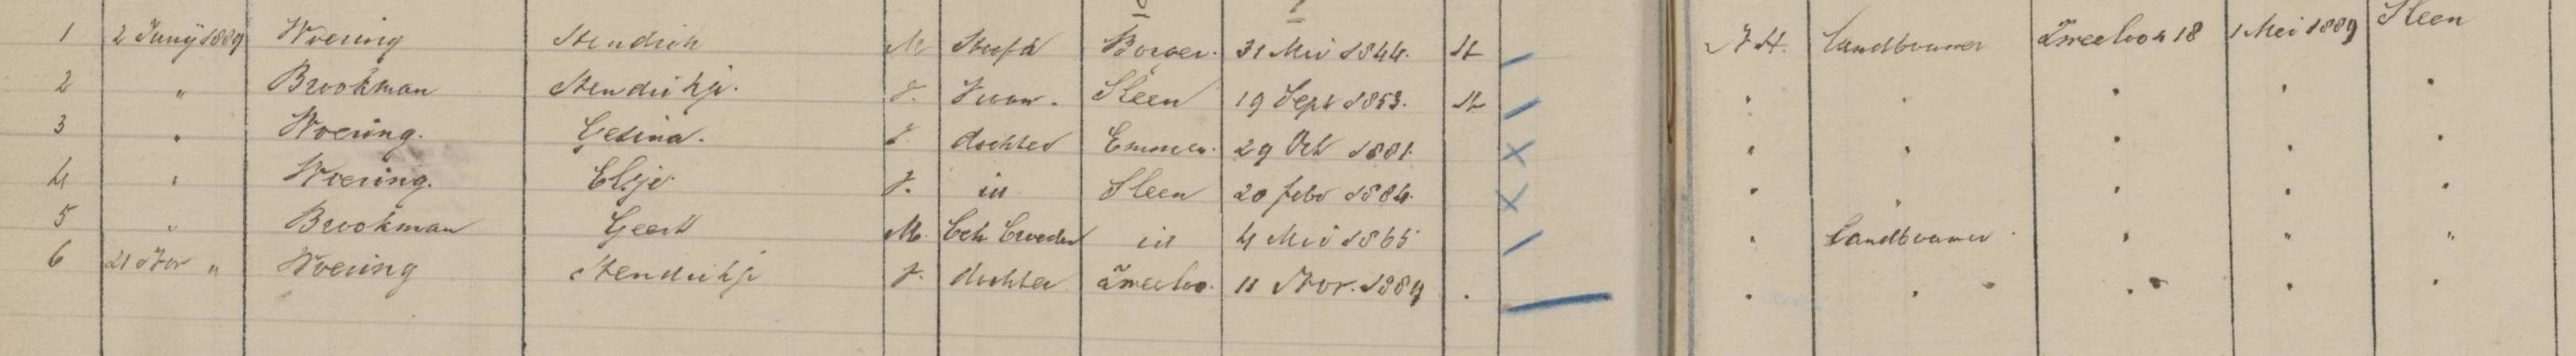 1 2 Juny 1889 Wvering Hendrik M Hoofd Borger. 31 Mei 1844. H N. H. landbouwer Zweeloo 18 1 Mei 1889 Sleen
2 " Brookman Hendrikje. V. Vrouw. Sleen 19 Sept 1853. H " " " " "
3 " Wvering. Gesina. V. dochter Emmen. 29 Oct 1881. X " " " " "
4 " Wvering. Elsje V. id Sleen 20 febr 1884. X " " " " "
5 " Brookman Geert M. id 4 Mei 1865 " landbouwer " " "
6 21 Nov " Wvering Hendrikje V. dochter Zweeloo. 11 Nov. 1889 " " " " "